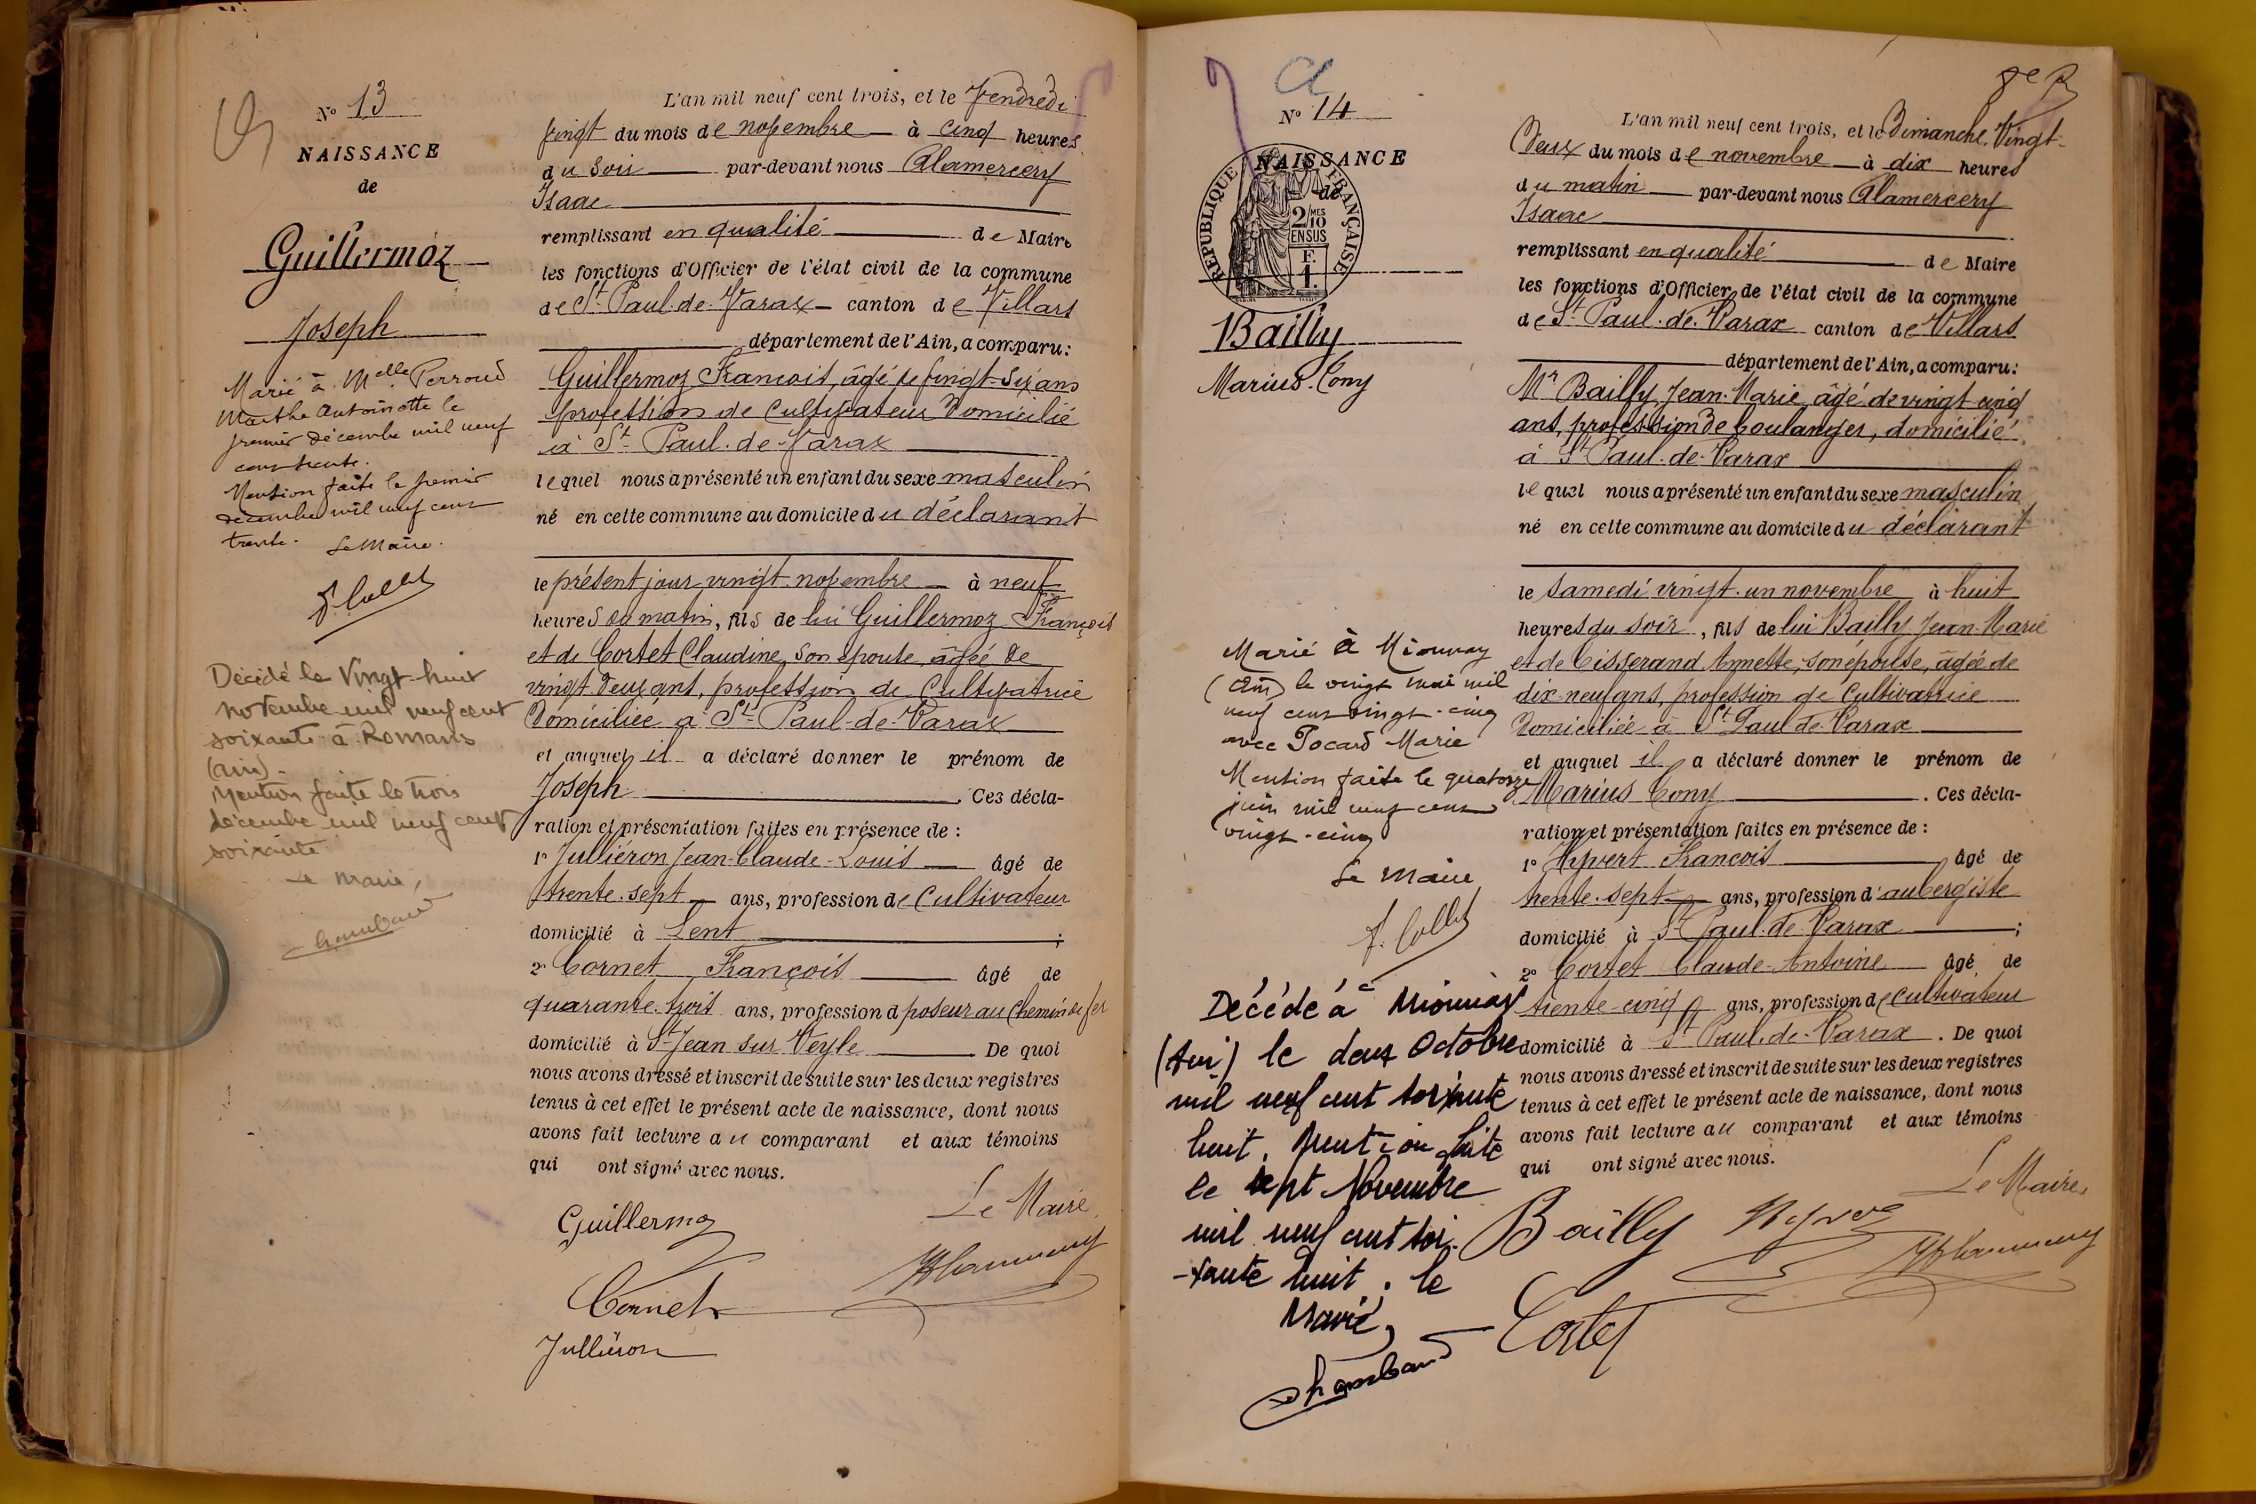 N° 13
NAISSANCE
de
Guillermoz
Joseph
Marié à Melle Perroud
Marthe Antoinette le
premier décembre mil neuf
cent trente.
Mention faite le premier
décembre mil neuf cent
trente. Le Maire.
F. Collet
Décédé le Vingt-huit
novembre mil neuf cent
soixante à Romans
(Ain).
Mention faite le trois
décembre mil neuf cent
soixante
Le Maire,
Chambard
L'an mil neuf cent trois, et le Vendredi
vingt du mois de novembre à cinq heures
du soir par-devant nous Alamercery
Isaac
remplissant en qualité de Maire
les fonctions d'Officier de l'état civil de la commune
de St Paul-de-Varax canton de Villars
département de l'Ain, a comparu:
Guillermoz François, âgé de vingt-six ans
profession de Cultivateur Domicilié
à St Paul-de-Varax
lequel nous a présenté un enfant du sexe masculin
né en cette commune au domicile du déclarant
le présent jour vingt novembre à neuf
heures du matin, fils de lui Guillermoz François
et de Cortet Claudine, son épouse, âgée de
vingt deux ans, profession de Cultivatrice
Domiciliée à St Paul-de-Varax
et auquel il a déclaré donner le prénom de
Joseph. Ces décla-
ration et présentation faites en présence de :
1° Julliéron Jean-Claude-Louis âgé de
trente-sept ans, profession de Cultivateur
domicilié à Lent ;
2° Cornet François âgé de
quarante-trois ans, profession d poseur au Chemin de fer
domicilié à St Jean sur Veyle. De quoi
nous avons dressé et inscrit de suite sur les deux registres
tenus à cet effet le présent acte de naissance, dont nous
avons fait lecture au comparant et aux témoins
qui ont signé avec nous.
Le Maire,
Guillermoz
Cornet
Julliéron
N° 14
NAISSANCE
de
RÉPUBLIQUE FRANÇAISE
2/10 MES
EN SUS
F.
1.
Bailly
Marius-Cony
Marié à Mionnay
(Ain) le vingt mai mil
neuf cent vingt-cinq
avec Pocard Marie
Mention faite le quatorze
juin mil neuf cent
vingt-cinq
Le Maire
F. Collet
Décédé à Mionnay
(Ain) le deux Octobre
mil neuf cent soixante
huit. Mention faite
le sept Novembre
mil neuf cent soi-
-xante huit. le
Maire,
Chambard
L'an mil neuf cent trois, et le Dimanche Vingt-
Deux du mois de novembre à dix heures
du matin par-devant nous Alamercery
Isaac
remplissant en qualité de Maire
les fonctions d'Officier de l'état civil de la commune
de St Paul-de-Varax canton de Villars
département de l'Ain, a comparu:
Mr Bailly Jean-Marie, âgé de vingt-cinq
ans, profession de boulanger, domicilié
à St Paul-de-Varax
lequel nous a présenté un enfant du sexe masculin
né en cette commune au domicile du déclarant
le samedi vingt-un novembre à huit
heures du soir, fils de lui Bailly Jean-Marie
et de Tisserand Annette, son épouse, âgée de
dix-neuf ans, profession de Cultivatrice
Domiciliée à St Paul-de-Varax
et auquel il a déclaré donner le prénom de
Marius Cony. Ces décla-
ration et présentation faites en présence de :
1° Hyvert François âgé de
trente-sept ans, profession d'aubergiste
domicilié à St Paul-de-Varax ;
2° Cortet Claude-Antoine âgé de
trente-cinq ans, profession de Cultivateur
domicilié à St Paul-de-Varax. De quoi
nous avons dressé et inscrit de suite sur les deux registres
tenus à cet effet le présent acte de naissance, dont nous
avons fait lecture au comparant et aux témoins
qui ont signé avec nous.
Le Maire,
Bailly Hyvert
Cortet